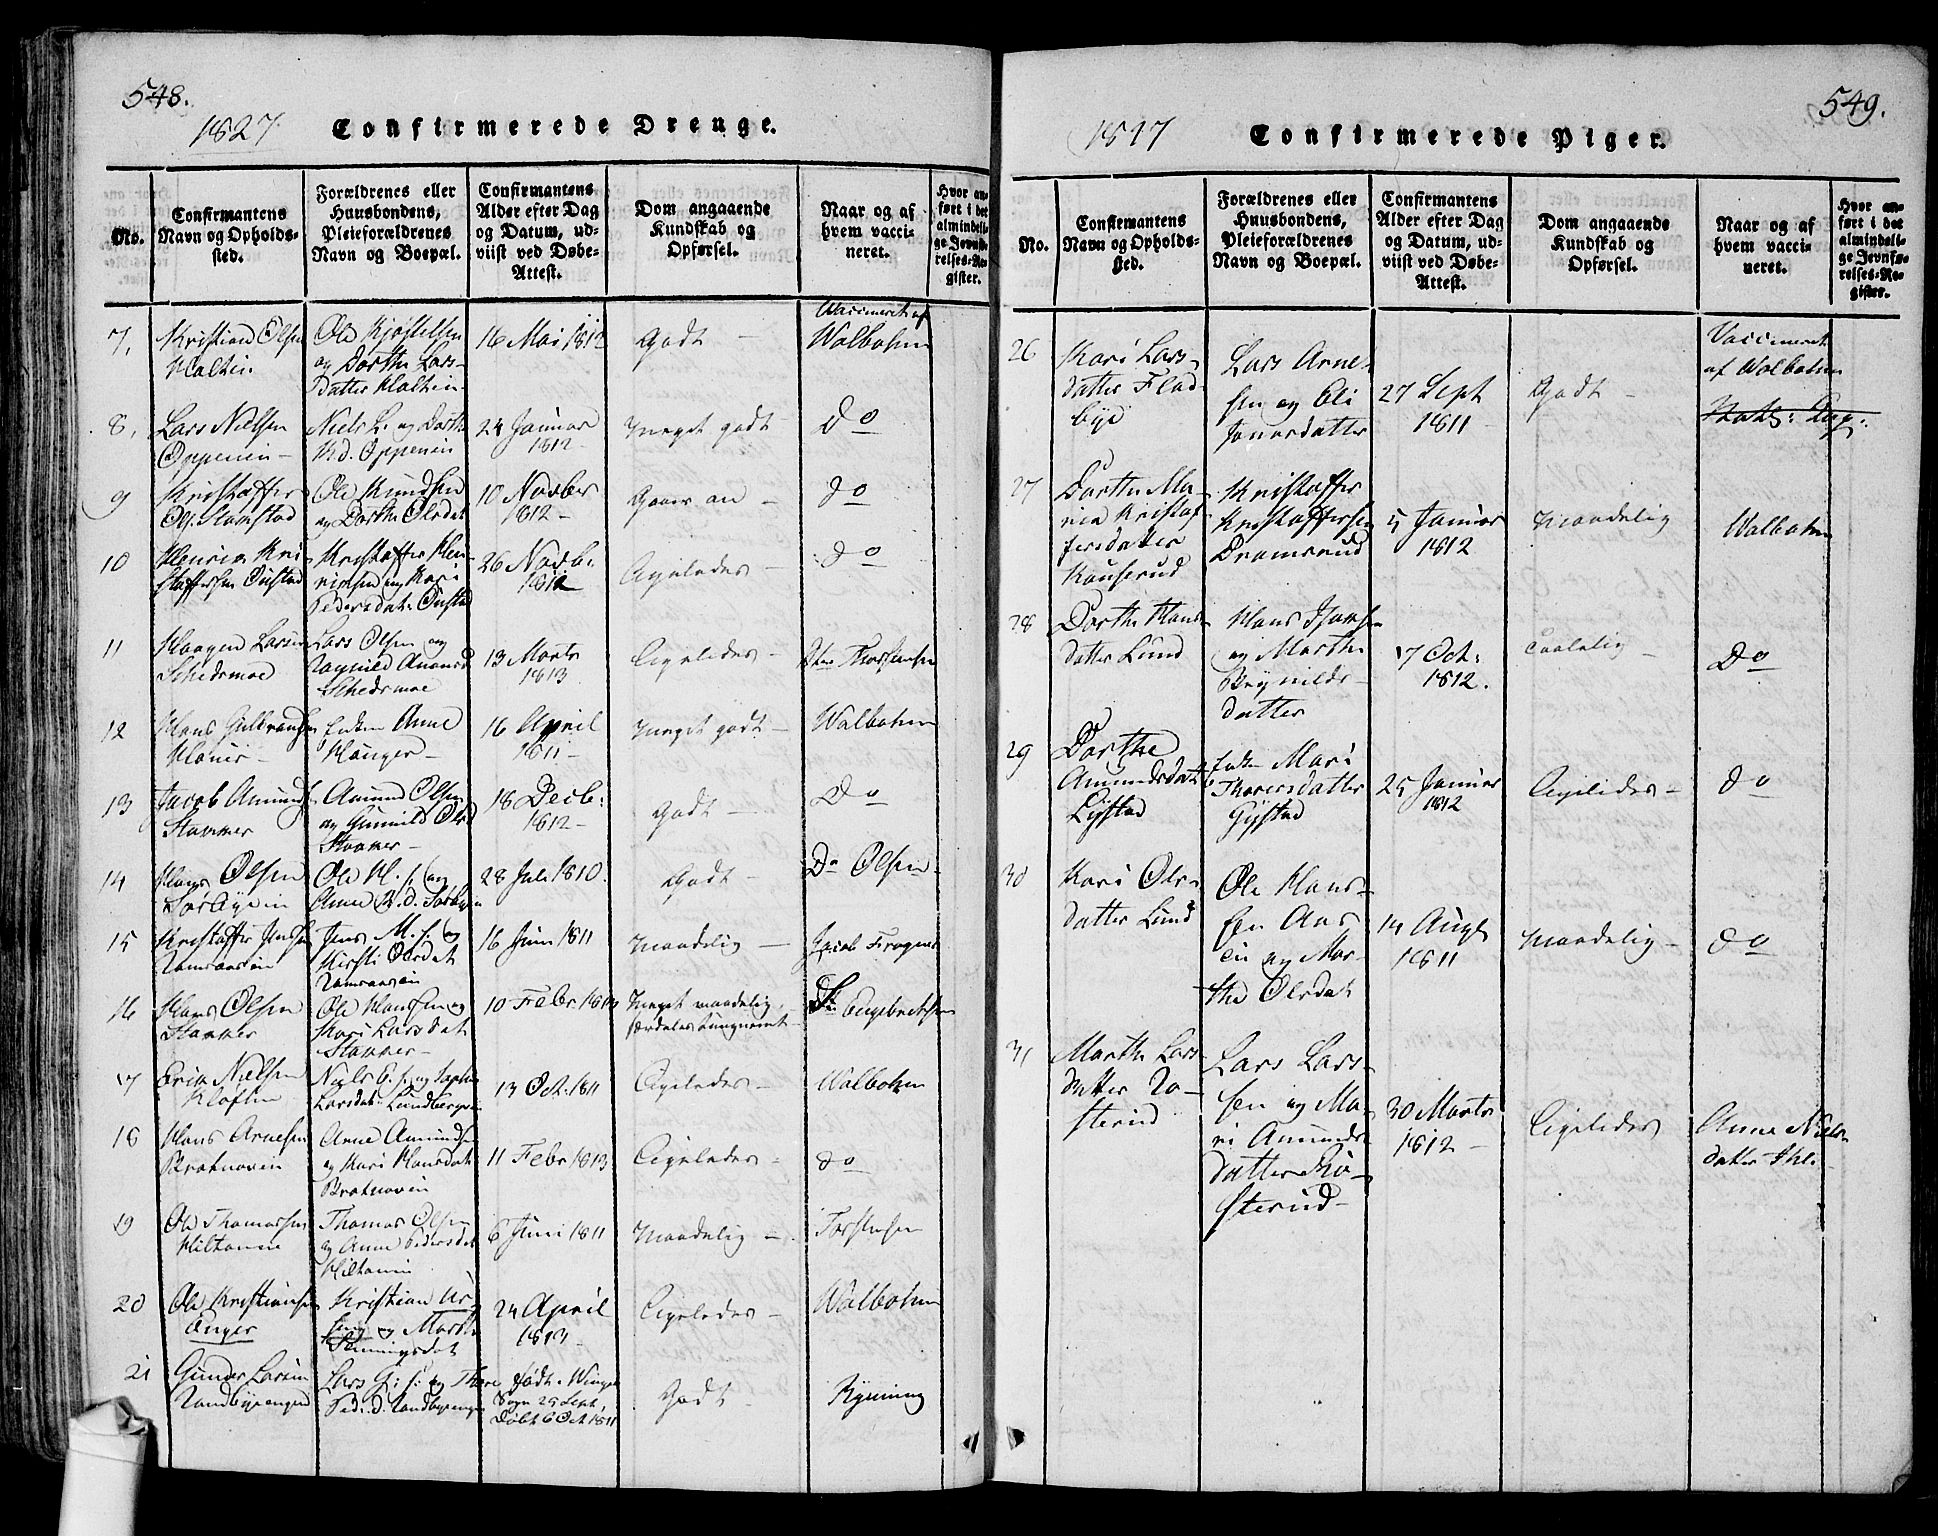 548.
1827 Confirmerede Drenge.
No.
Confirmantens
Navn og Opholds-
sted.
Forældrenes eller
Huusbondens,
Pleieforældrenes
Navn og Boepæl.
Confirmantens
Alder efter Dag
og Datum, ud-
viist ved Døbe-
Attest.
Dom angaaende
Kundskab og
Opførsel.
Naar og af
hvem vacci-
neret.
Hvor an-
ført i det
almindeli-
ge Jevnfø-
relses-Re-
gister.
7.
Kristian Olsen
Holtin
Ole Kjøstelsen
og Dorthe Lars-
datter Holtin
16 Mai 1812
Godt
Vaccineret af
Walbohm
8.
Lars Nielsen
Oppenin
Niels L. og Dorthe
K.d. Oppenin
24 Januar
1812
Meget godt
Do
9
Kristoffer
Ols. Stamstad
Ole Knudsen
og Dorthe Olsdat
10 Novber
1812
Gaaer an
do
10
Henrik Kri
stoffersen Oustad
Kristoffer Hen
richsen og Kari
Pedersdat: Oustad
26 Novb.
1812
Ligeledes
do
11
Haagen Larsen
Schedsmoe
Lars Olsen og
Ragnild
Schedsmoe
13 Marts
1813
Ligeledes
Thorstensen
12
Hans Gulbrandsen
Enken Anne
Hanger
16 April
1811
Meget godt
Walbohm
13
Jacob Amunds
Stanner
Amund Olsen
og Gunnild Olsd
Stanner
18 Decb:
1812
Godt
Do
14
Hans Olsen
Ole H. s. og
Anne
28 Juli 1810.
Godt
Do Olsen
15
Kristoffer Jensen
Ramsaasin
Jens M. s. og
Kirsti Olsdat
Ramsaasin
16 Juni 1811
Maadelig
Jacob Frogner
16
Hans Olsen
Stanner
Ole Hansen og
Kari Larsdat
Stanner
10 Febr
Meget maadelig,
særdeles tungnemt
Engebretsen
17
Erik Nielsen
Kloften
Niels E. s. og Sophie
Larsdat: Lundbergsen
13 Oct. 1811
Ligeledes
Walbohm
18
Hans Arnesen
Bratnovin
Arne Amundsen
og Kari Hansdat
Bratnovin
11 Febr 1813
Ligeledes
do
19
Ole Thomassen
Hiltonin
Thomas Olsen
og Anne Pedersdat
Hiltonin
6 Juni 1811
Maadelig
Torstensen
20
Ole Kristiansen
Enger
Kristian
og Marthe
Henningsdat
24 April
1813
Ligeledes
Walbohm
21
Gunder Larsen
Randbyrengen
Lars G: s: og Thore
Ped: d. Randbyrengen
født. Winger
Sogn 29 Sept,
Døbt 6 Oct 1811
Godt
Ryening
549.
1827 Confirmerede Piger.
No.
Confirmantens
Navn og Opholds-
sted.
Forældrenes eller
Huusbondens,
Pleieforældrenes
Navn og Boepæl.
Confirmantens
Alder efter Dag
og Datum, ud-
viist ved Døbe-
Attest.
Dom angaaende
Kundskab og
Opførsel.
Naar og af
hvem vacci-
neret.
Hvor an-
ført i det
almindeli-
ge Jevnfø-
relses-Re-
gister.
26
Kari Lars
datter Flad
bye
Lars Arne-
sen og Eli
Jonasdatter
27 Sept
1811
Godt
Vaccineret
af Walbohm
27
Dorthe Ma-
rie Kristof
fersdatter
Kauserud
Kristoffer
Kristoffersen
Dramsrud
5 Januar
1812
Maadelig
Walbohm
28
Dorthe Hans
datter Lund
Hans
og Marthe
Brynilds-
datter
7 Oct:
1812.
Taalelig
Do
29
Dorthe
Amundsdatter
Gystad
Enken Mari
Thoresdatter
Gystad
25 Januar
1812
Ligeledes
do
30
Kari Ols-
datter Lund
Ole Han-
sen Aas
en og Mar-
the Olsdat
14 Augs
1811
Maadelig
do
31
Marthe Lars
datter Ro-
sterud
Lars Lars-
sen og Ma-
ri Amunds
datter Ro-
sterud
30 Marts
1812
Ligeledes
Anne Niels
datter